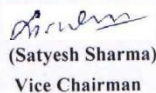 (Satyesh Sharma)
Vice Chairman